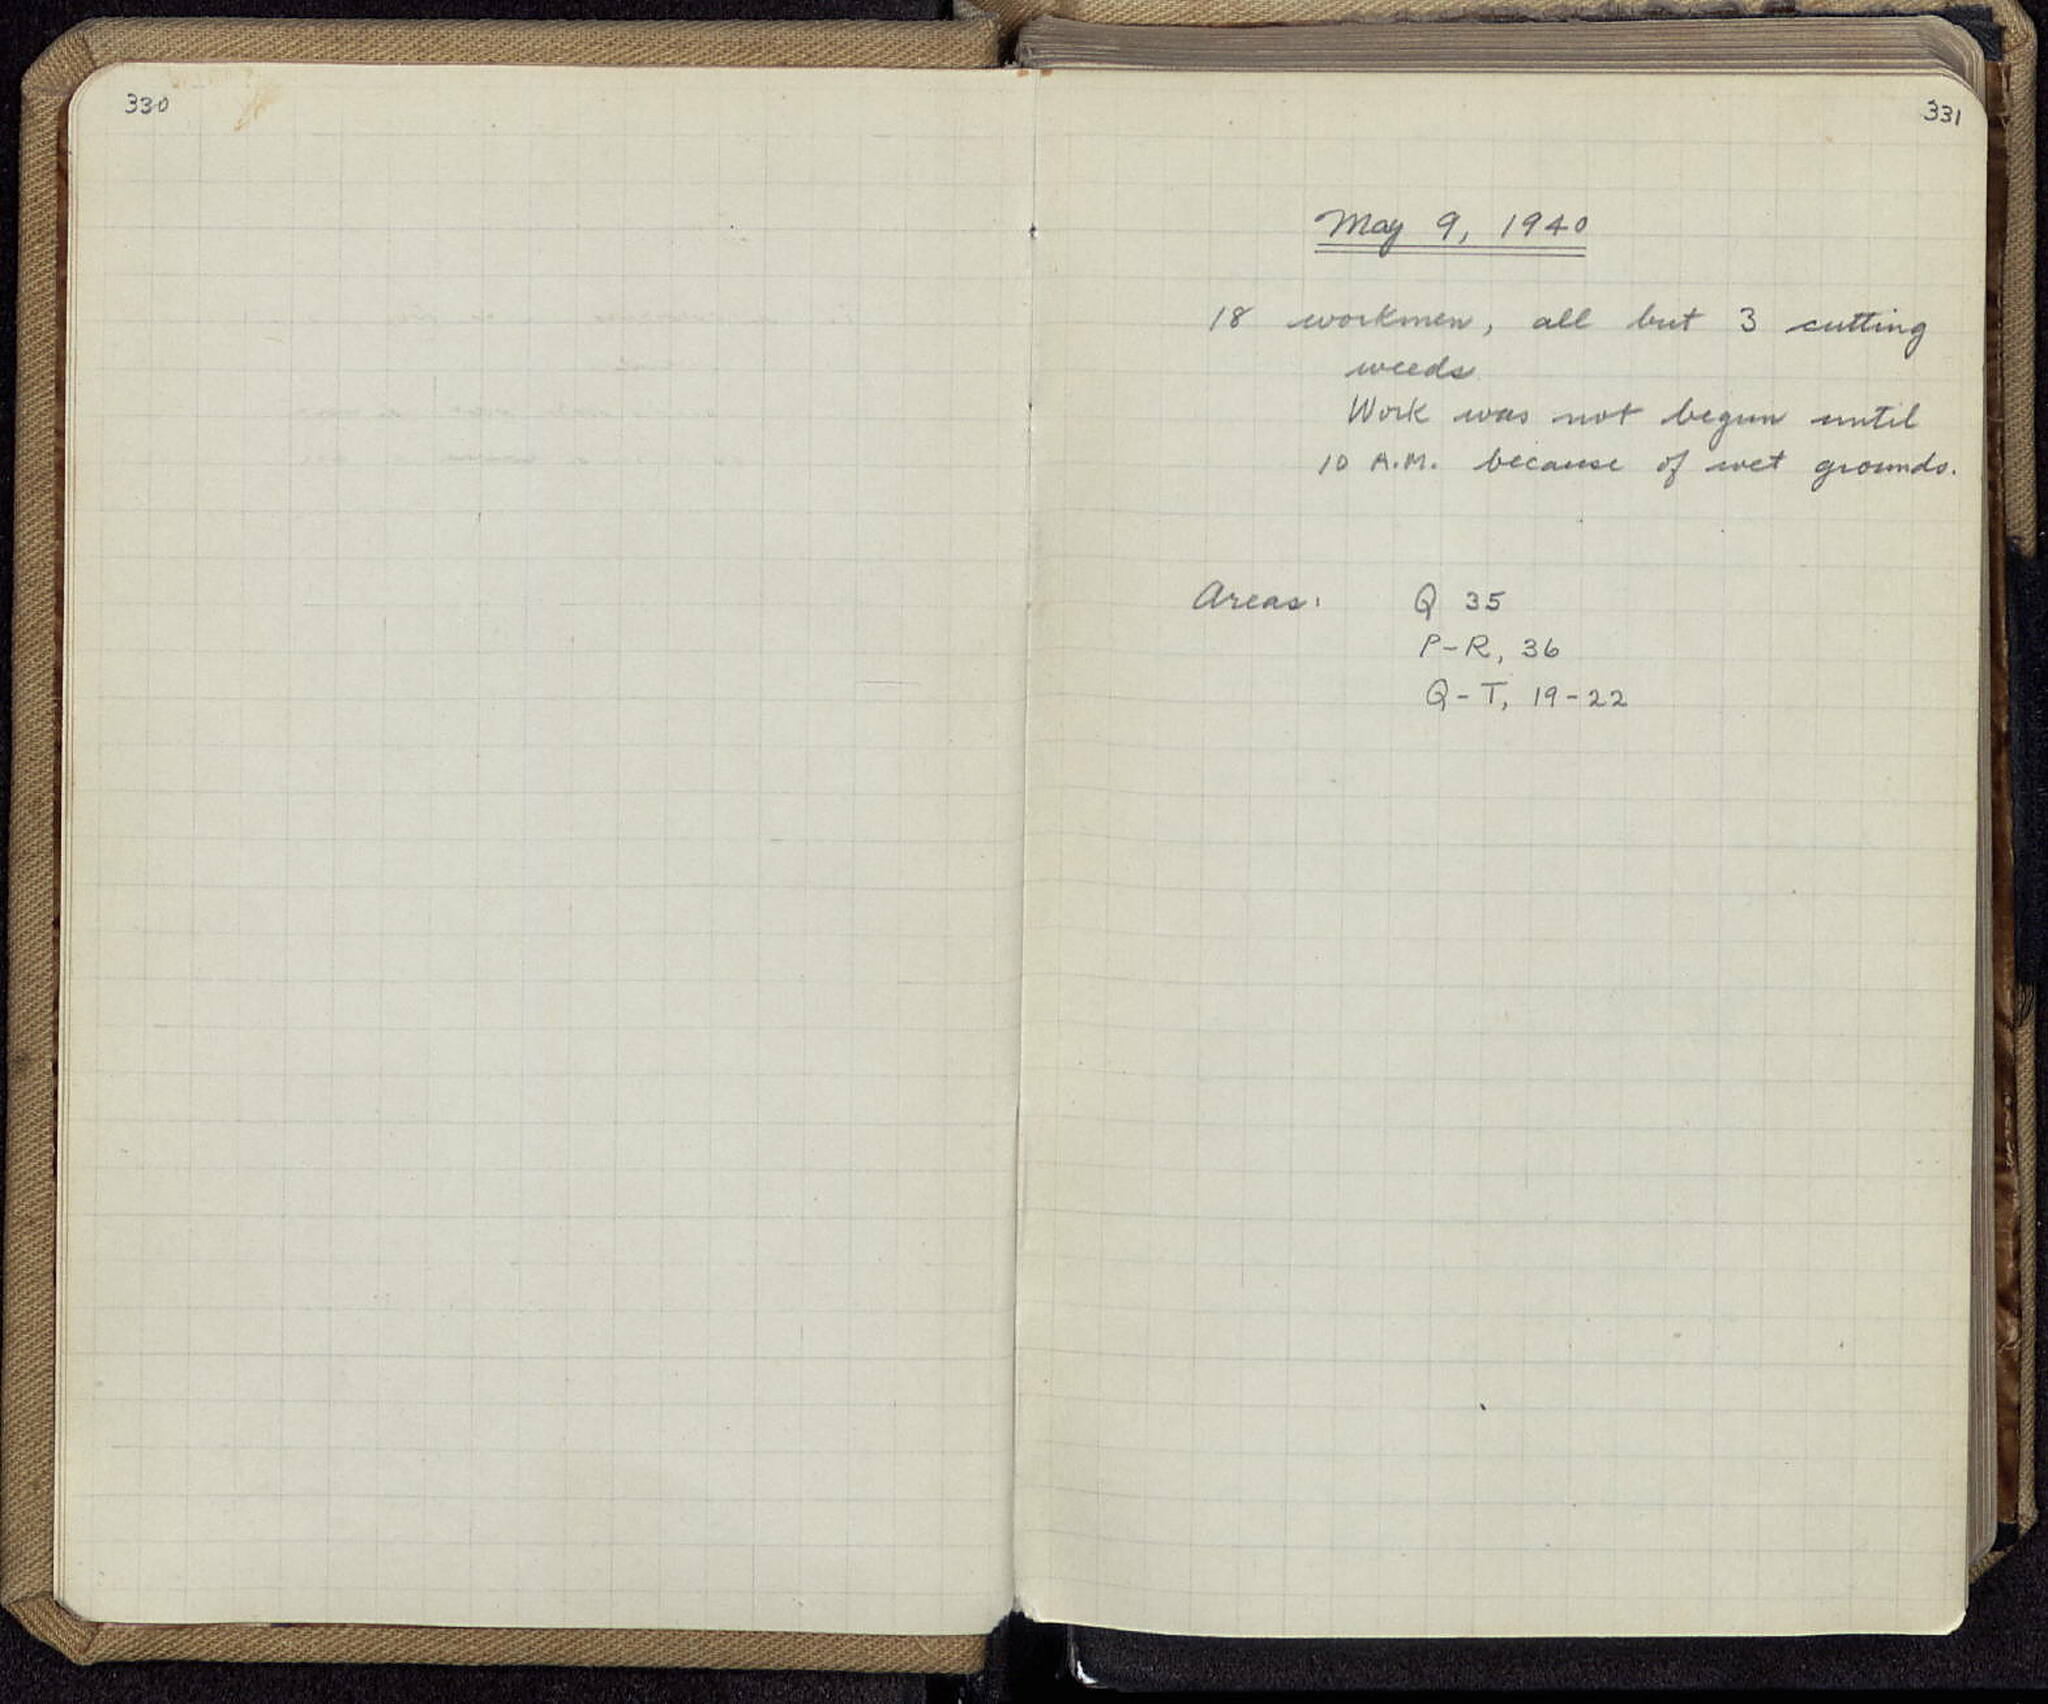 330
331
May 9, 1940
18 workmen, all but 3 cutting
weeds.
Work was not begun until
10 A.M. because of wet grounds.
Areas: Q 35
P-R, 36
Q-T, 19-22